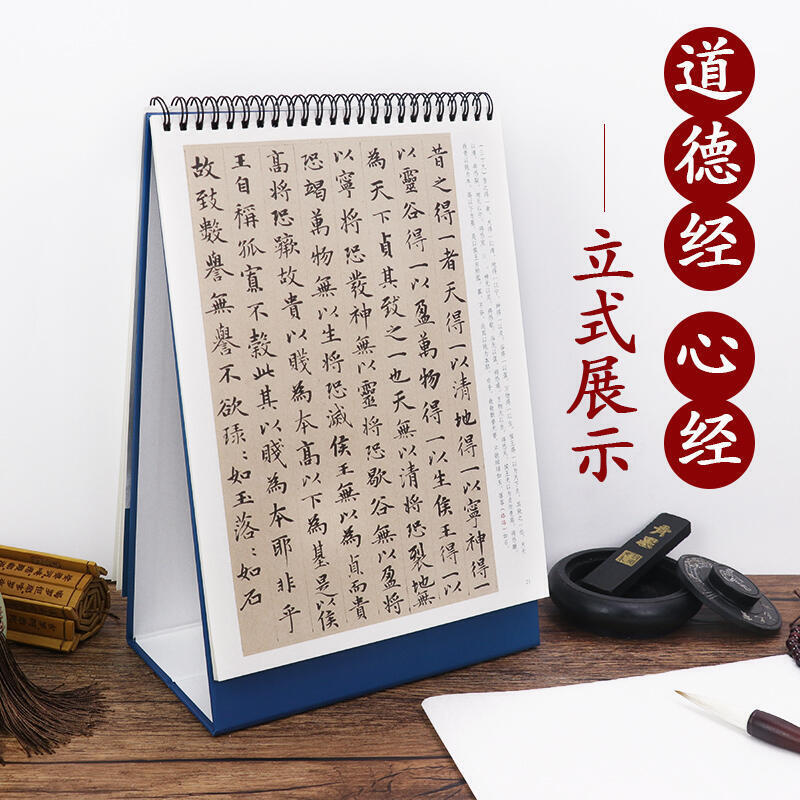 道德经
心经
立式展示
昔之得一者天得一以清地得一以寧神得一
以靈谷得一以盈萬物得一以生侯王得一以
為天下貞其致之一也天無以清將恐裂地無
以寧將恐發神無以靈將恐歇谷無以盈將
恐竭萬物無以生將恐滅侯王無以為貞而貴
高將恐蹶故貴以賤為本高以下為基是以侯
王自稱孤寡不穀此其以賤為本耶非乎
故致數譽無譽不欲琭:如玉落:如石
21